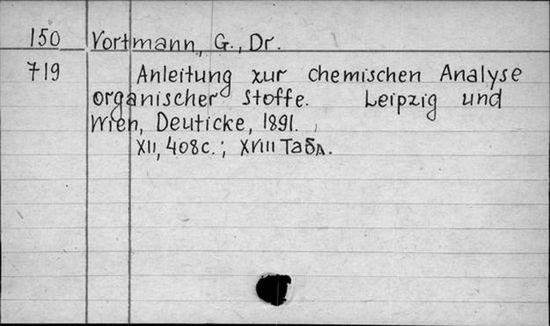 150 Vortmann, G., Dr.
719 Anleitung zur chemischen Analyse
organischer Stoffe. Leipzig und
Wien, Deuticke, 1891.
XII, 408 с.; XVIII Табл.